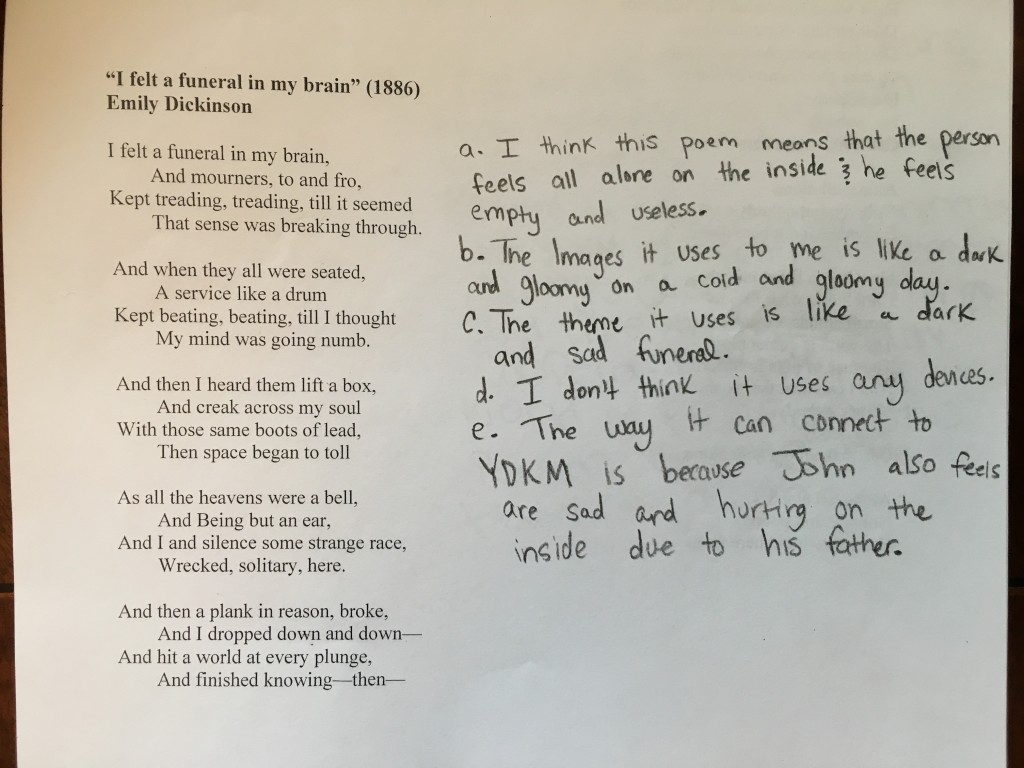 “I felt a funeral in my brain” (1886)
Emily Dickinson
I felt a funeral in my brain,
And mourners, to and fro,
Kept treading, treading, till it seemed
That sense was breaking through.
And when they all were seated,
A service like a drum
Kept beating, beating, till I thought
My mind was going numb.
And then I heard them lift a box,
And creak across my soul
With those same boots of lead,
Then space began to toll
As all the heavens were a bell,
And Being but an ear,
And I and silence some strange race,
Wrecked, solitary, here.
And then a plank in reason, broke,
And I dropped down and down—
And hit a world at every plunge,
And finished knowing—then—
a. I think this poem means that the person
feels all alone on the inside & he feels
empty and useless.
b. The Images it uses to me is like a dark
and gloomy on a cold and gloomy day.
C. The theme it uses is like a dark
and sad funeral.
d. I don't think it uses any devices.
e. The way it can connect to
YDKM is because John also feels
are sad and hurting on the
inside due to his father.